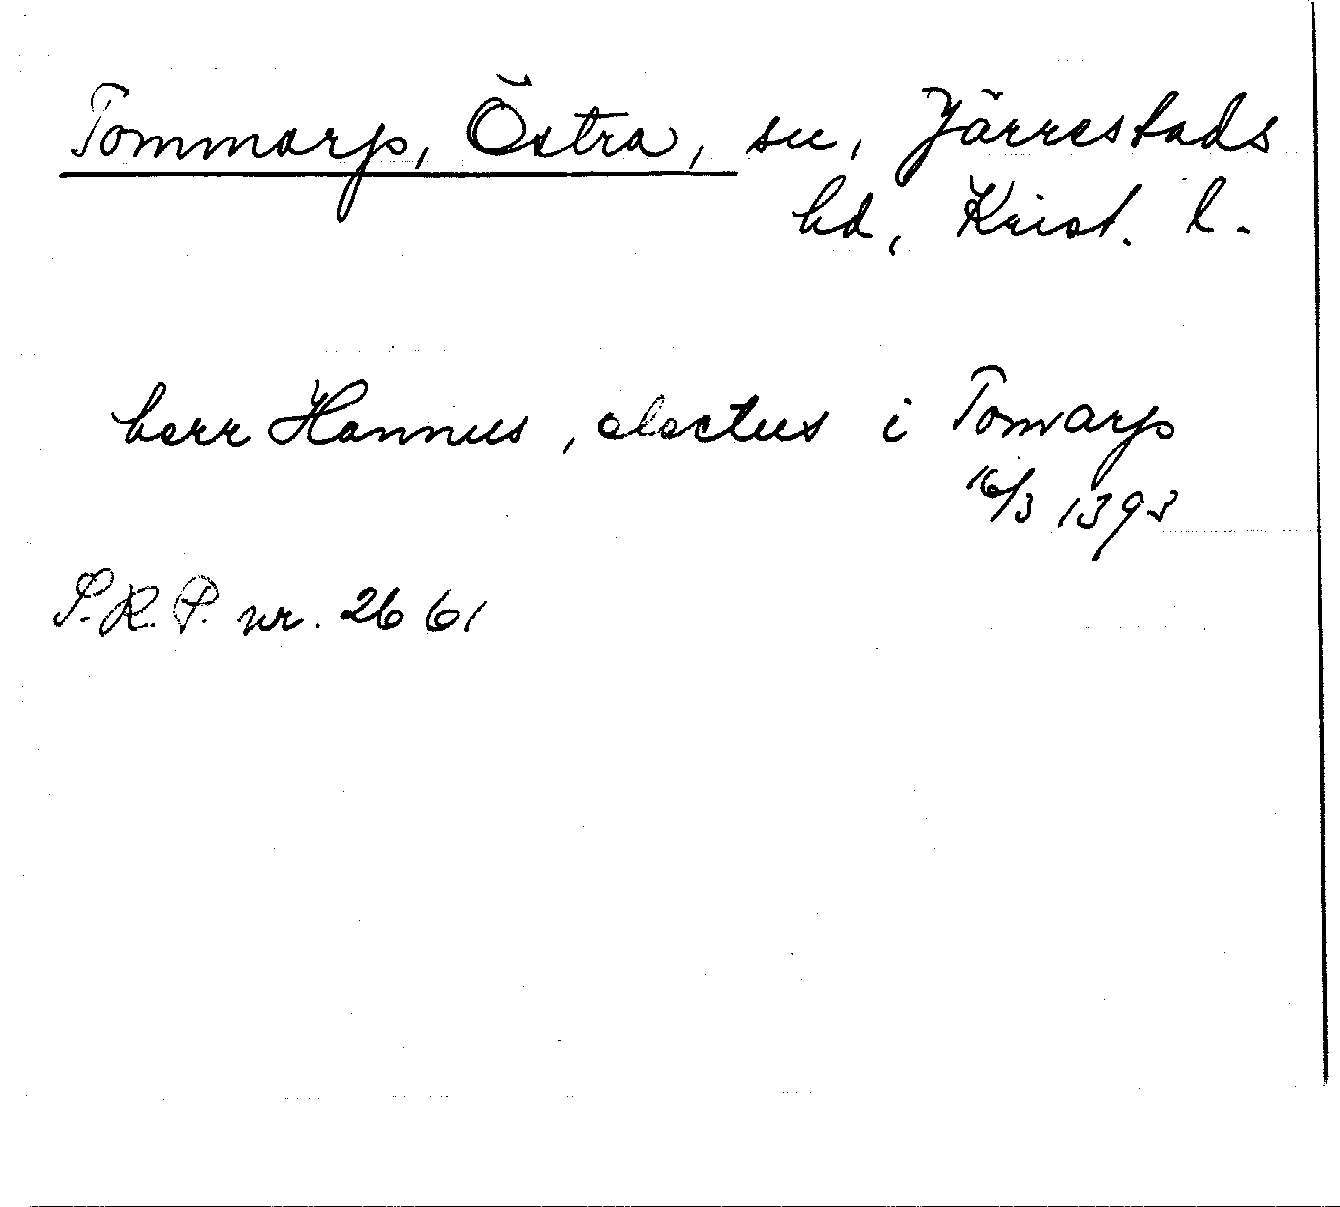 Tommarp, Östra, sn, Järrestads
hd, Krist. l.
herr Hannus, electus i Tomarp
16/3 1393
S.R.P. nr. 2661